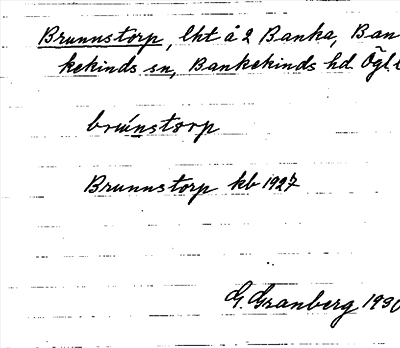 Brunnstorp, lht å 2 Banka, Ban-
kekinds sn, Bankekinds hd. Ögl.
brúnstorp
Brunnstorp kb 1927
G. Granberg 1930